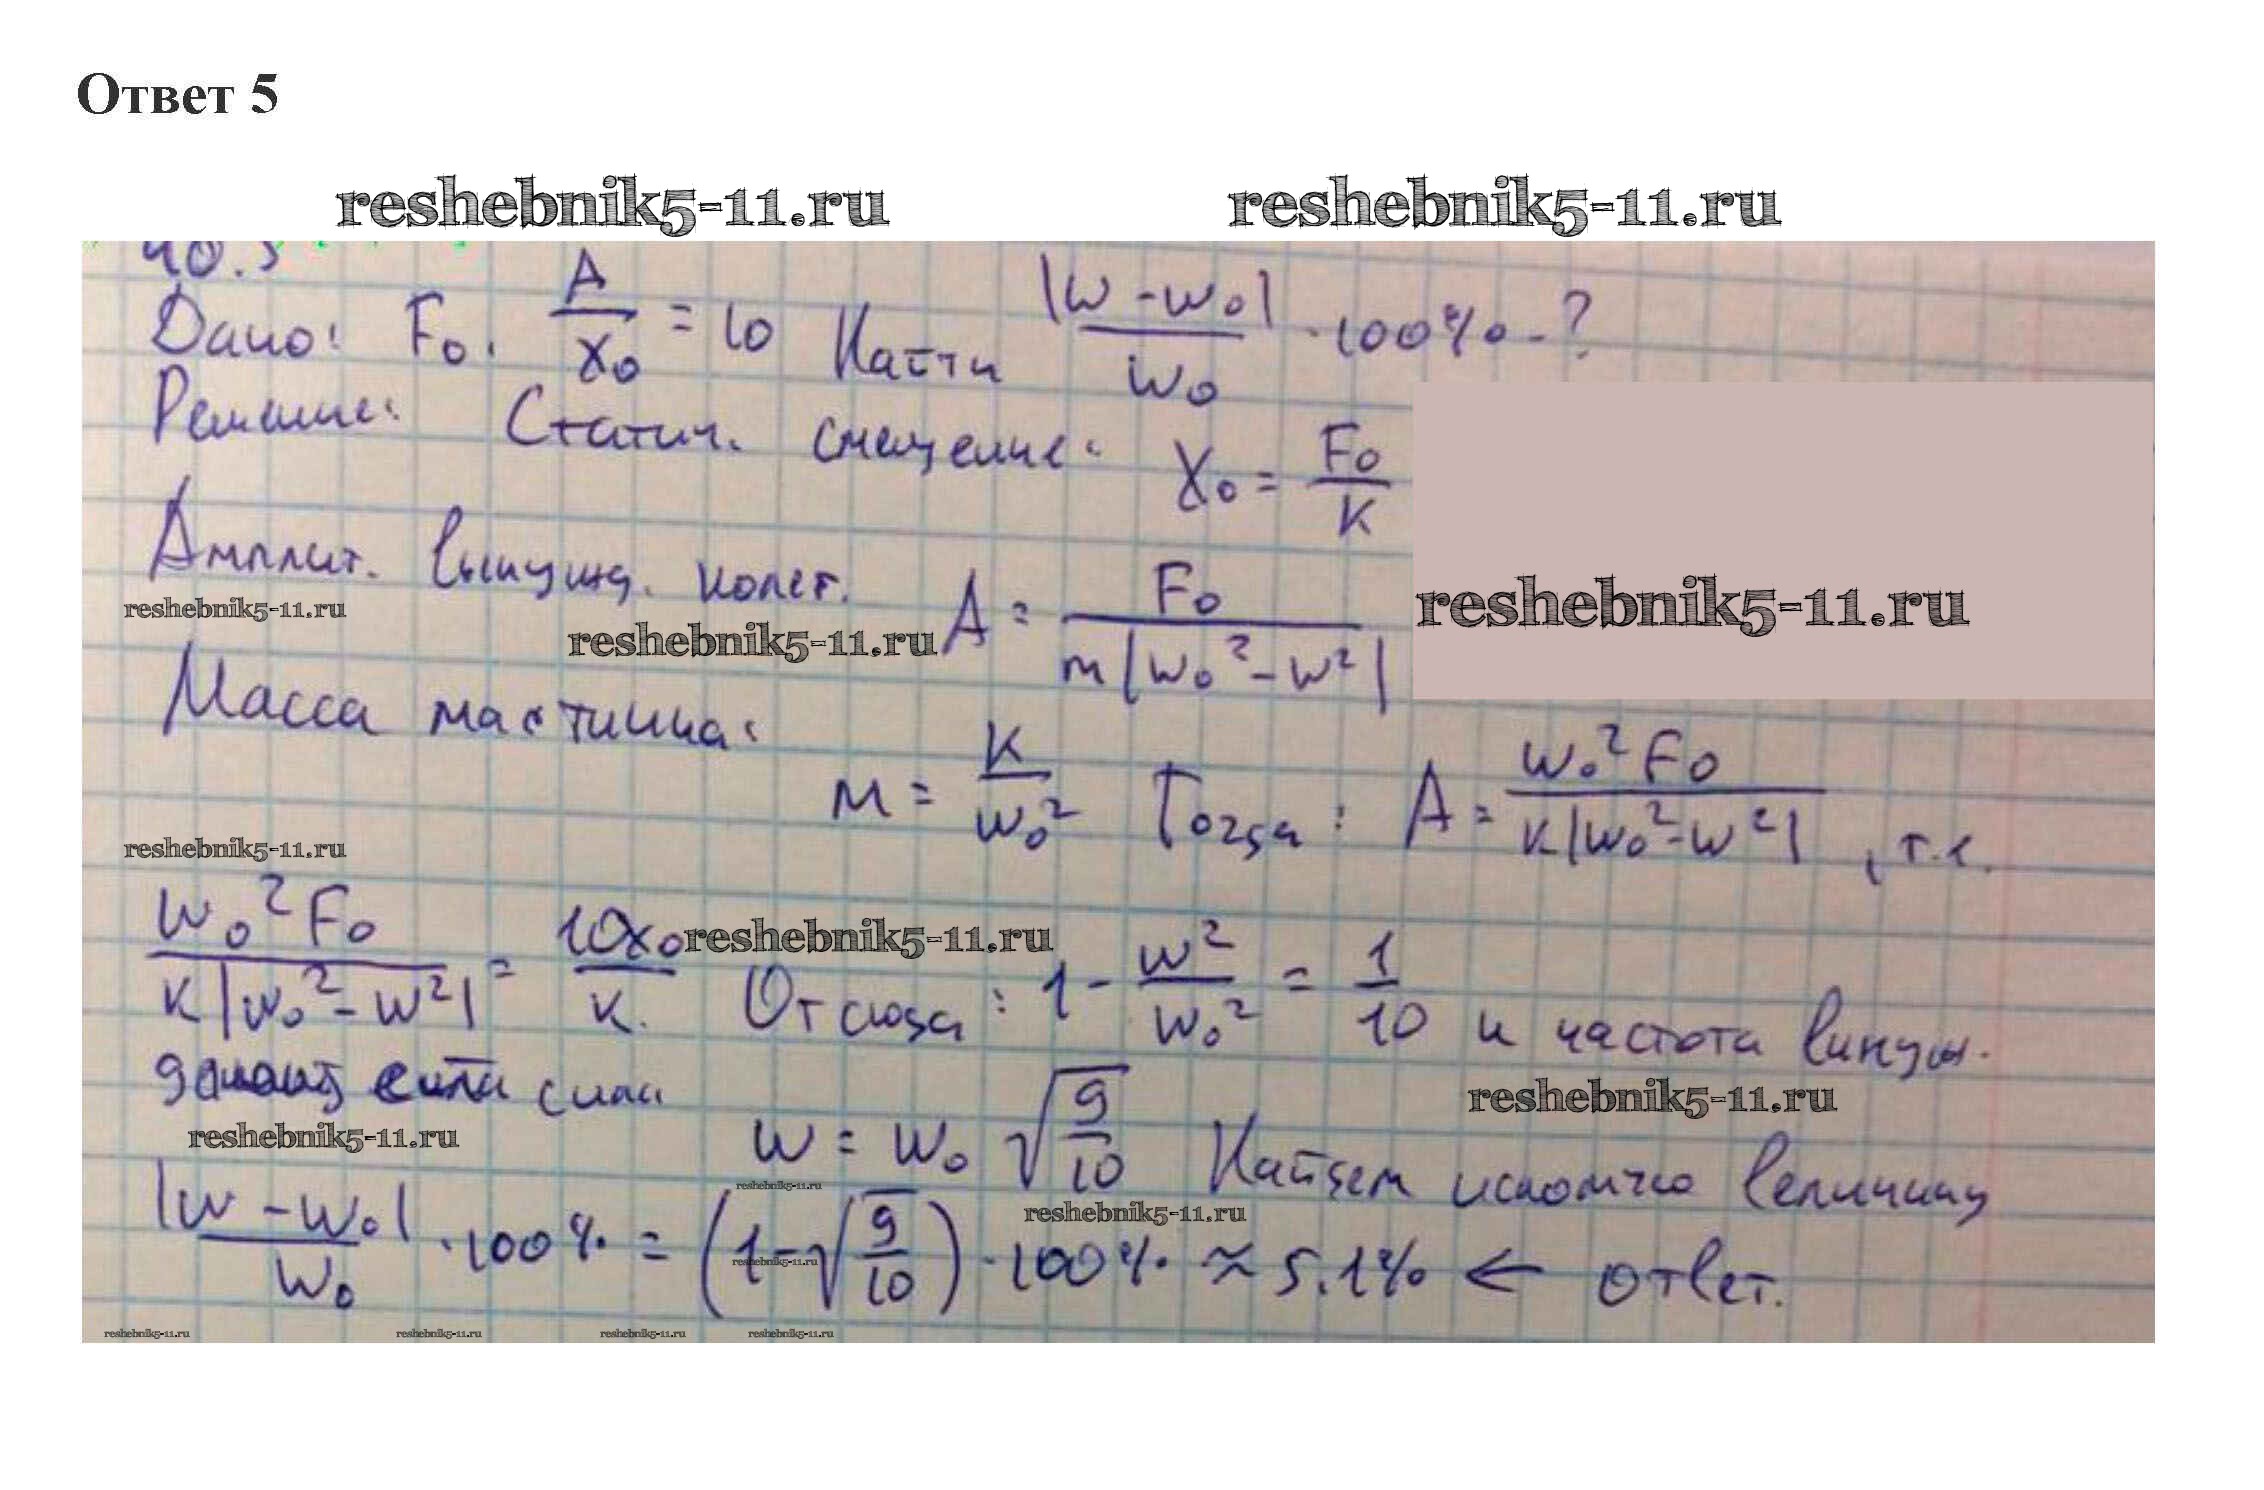 Ответ 5
reshebnik5-11.ru reshebnik5-11.ru
40.5
Дано: F₀. A/x₀ = 10 Найти |w - w₀|/w₀ · 100% - ?
Решение: Статич. смещение: X₀ = F₀/K
Амплит. вынужд. колеб. A = F₀/(m|w₀² - w²|)
reshebnik5-11.ru reshebnik5-11.ru reshebnik5-11.ru
Масса маятника:
m = K/w₀² Тогда: A = w₀²F₀/(K|w₀² - w²|), т.к.
reshebnik5-11.ru
w₀²F₀/(K|w₀² - w²|) = 10x₀/K. Отсюда: 1 - w²/w₀² = 1/10 и частота вынуж-
reshebnik5-11.ru
сила
reshebnik5-11.ru reshebnik5-11.ru
w = w₀ √(9/10) Найдем величину
reshebnik5-11.ru reshebnik5-11.ru
|w - w₀|/w₀ · 100% = (1 - √(9/10)) · 100% ≈ 5.1% ← ответ.
reshebnik5-11.ru
reshebnik5-11.ru reshebnik5-11.ru reshebnik5-11.ru reshebnik5-11.ru